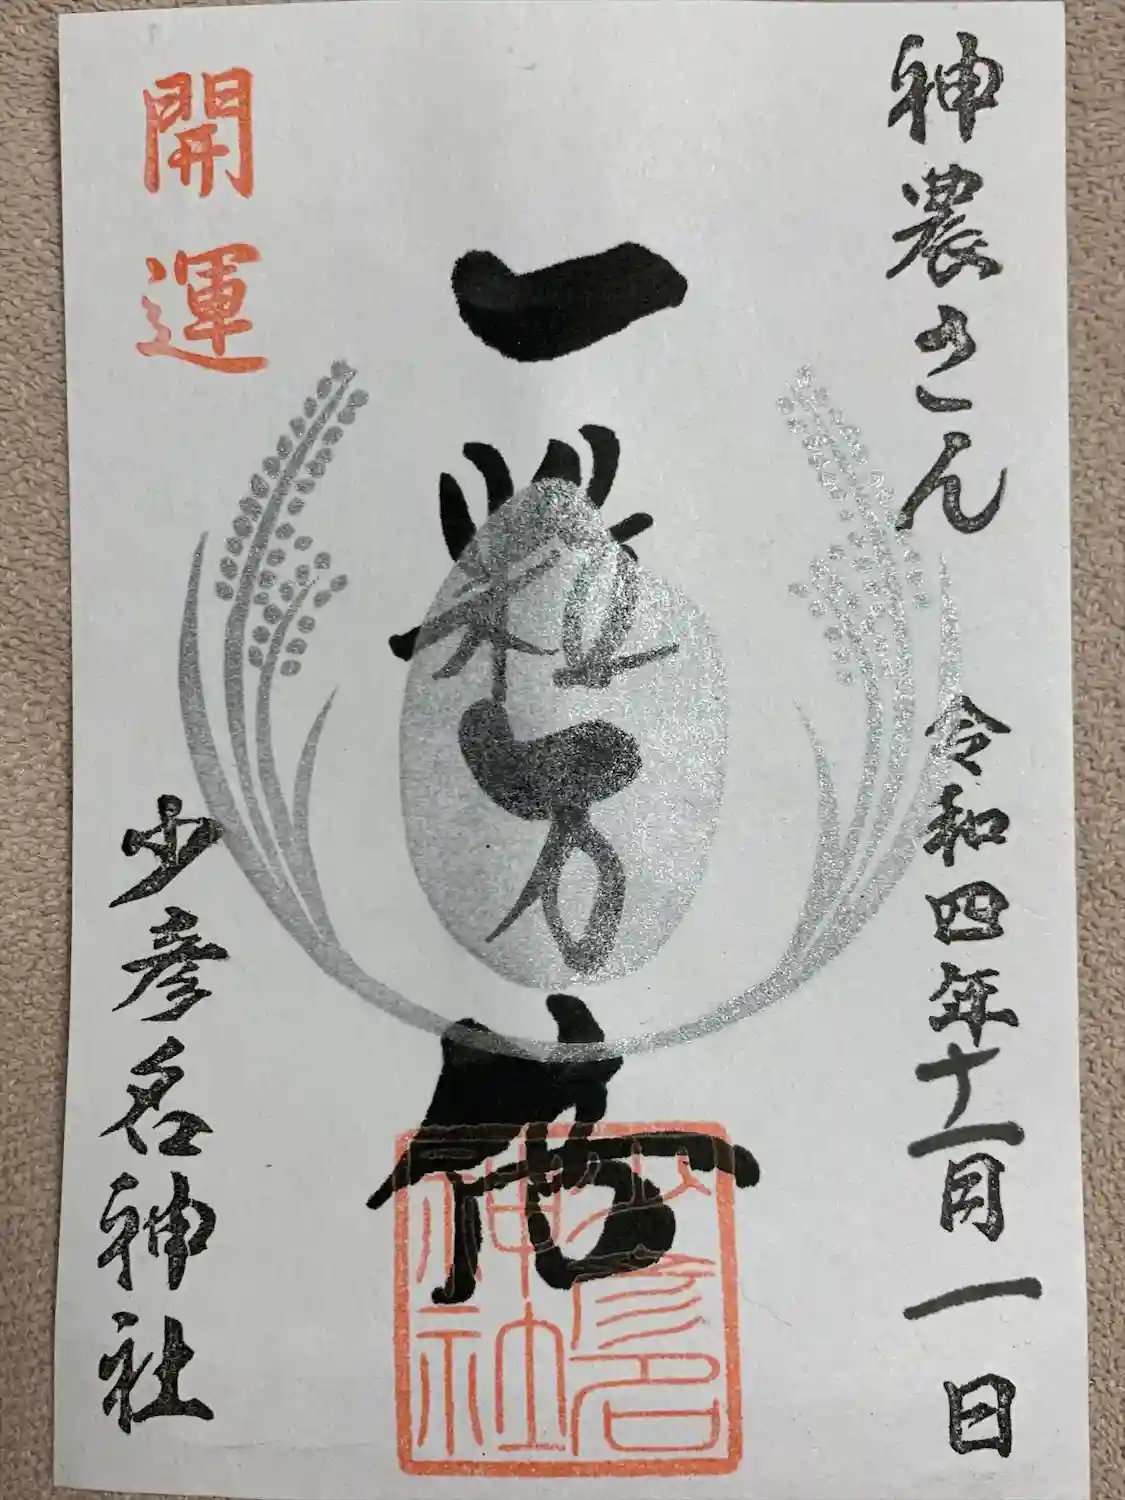 神農さん
令和四年十一月一日
一粒万倍
開運
少彦名神社
少彦名神社